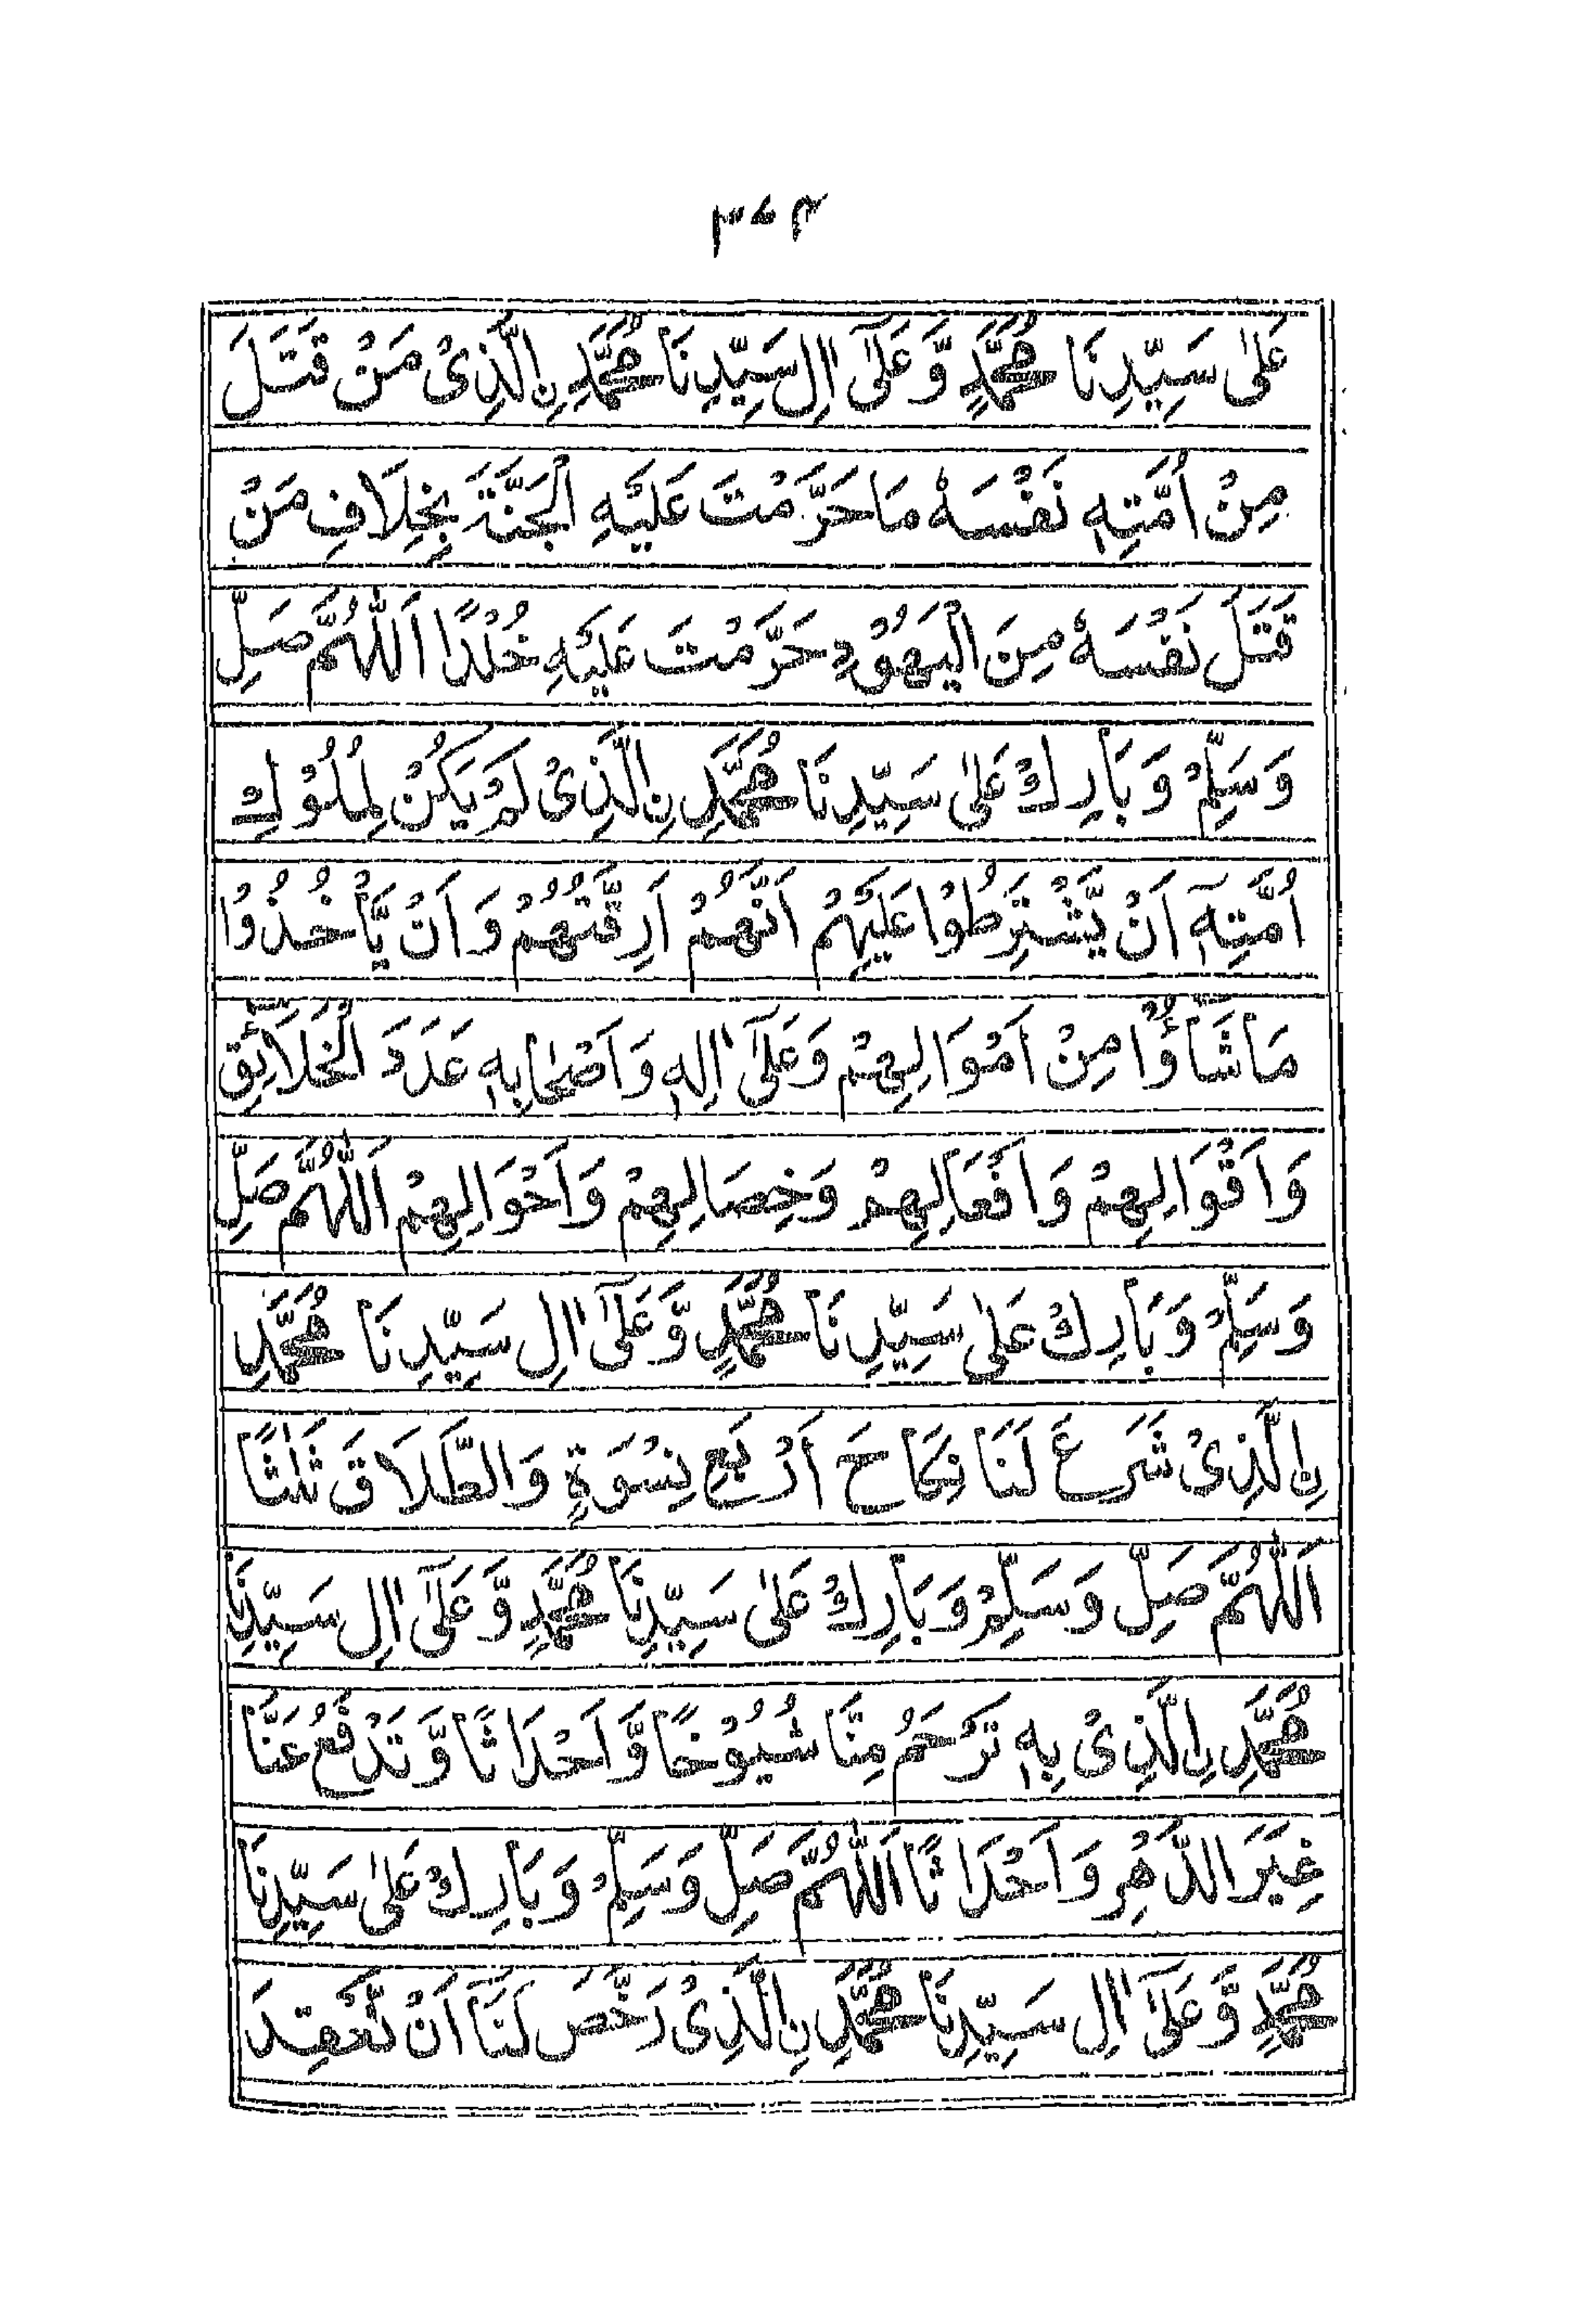 ۳۷۴
عَلٰى سَيِّدِنَا مُحَمَّدٍ وَّعَلٰٓى اٰلِ سَيِّدِنَا مُحَمَّدِ نِ الَّذِىْ مَنْ قَتَلَ
مِنْ اُمَّتِهٖ نَفْسَهٗ مَا حَرَّمْتَ عَلَيْهِ الْجَنَّةَ بِخِلَافِ مَنْ
قَتَلَ نَفْسَهٗ مِنَ الْيَهُوْدِ حَرَّمْتَ عَلَيْهِ خُلْدًا اَللّٰهُمَّ صَلِّ
وَسَلِّمْ وَبَارِكْ عَلٰى سَيِّدِنَا مُحَمَّدِ نِ الَّذِىْ لَمْ يَكُنْ لِمُلُوْكِ
اُمَّتِهٖٓ اَنْ يَّشْتَرِطُوْا عَلَيْهِمْ اَنَّهُمْ اَرِقَّتُهُمْ وَاَنْ يَّأْخُذُوْا
مَا شَآءُوْا مِنْ اَمْوَالِهِمْ وَعَلٰٓى اٰلِهٖ وَاَصْحَابِهٖ عَدَدَ الْخَلَآئِقِ
وَاَقْوَالِهِمْ وَاَفْعَالِهِمْ وَخِصَالِهِمْ وَاَحْوَالِهِمْ اَللّٰهُمَّ صَلِّ
وَسَلِّمْ وَبَارِكْ عَلٰى سَيِّدِنَا مُحَمَّدٍ وَّعَلٰٓى اٰلِ سَيِّدِنَا مُحَمَّدِ
نِ الَّذِىْ شَرَعَ لَنَا نِكَاحَ اَرْبَعِ نِسْوَةٍ وَالطَّلَاقَ ثَلٰثًا
اَللّٰهُمَّ صَلِّ وَسَلِّمْ وَبَارِكْ عَلٰى سَيِّدِنَا مُحَمَّدٍ وَّعَلٰٓى اٰلِ سَيِّدِنَا
مُحَمَّدِ نِ الَّذِىْ بِهٖ تَرْحَمُ مِنَّا شُيُوْخًا وَّاَحْدَاثًا وَّتَدْفَعُ عَنَّا
غِيَرَ الدَّهْرِ وَاَحْدَاثًا اَللّٰهُمَّ صَلِّ وَسَلِّمْ وَبَارِكْ عَلٰى سَيِّدِنَا
مُحَمَّدٍ وَّعَلٰٓى اٰلِ سَيِّدِنَا مُحَمَّدِ نِ الَّذِىْ رَخَّصَ لَنَآ اَنْ نَّعْقِدَ